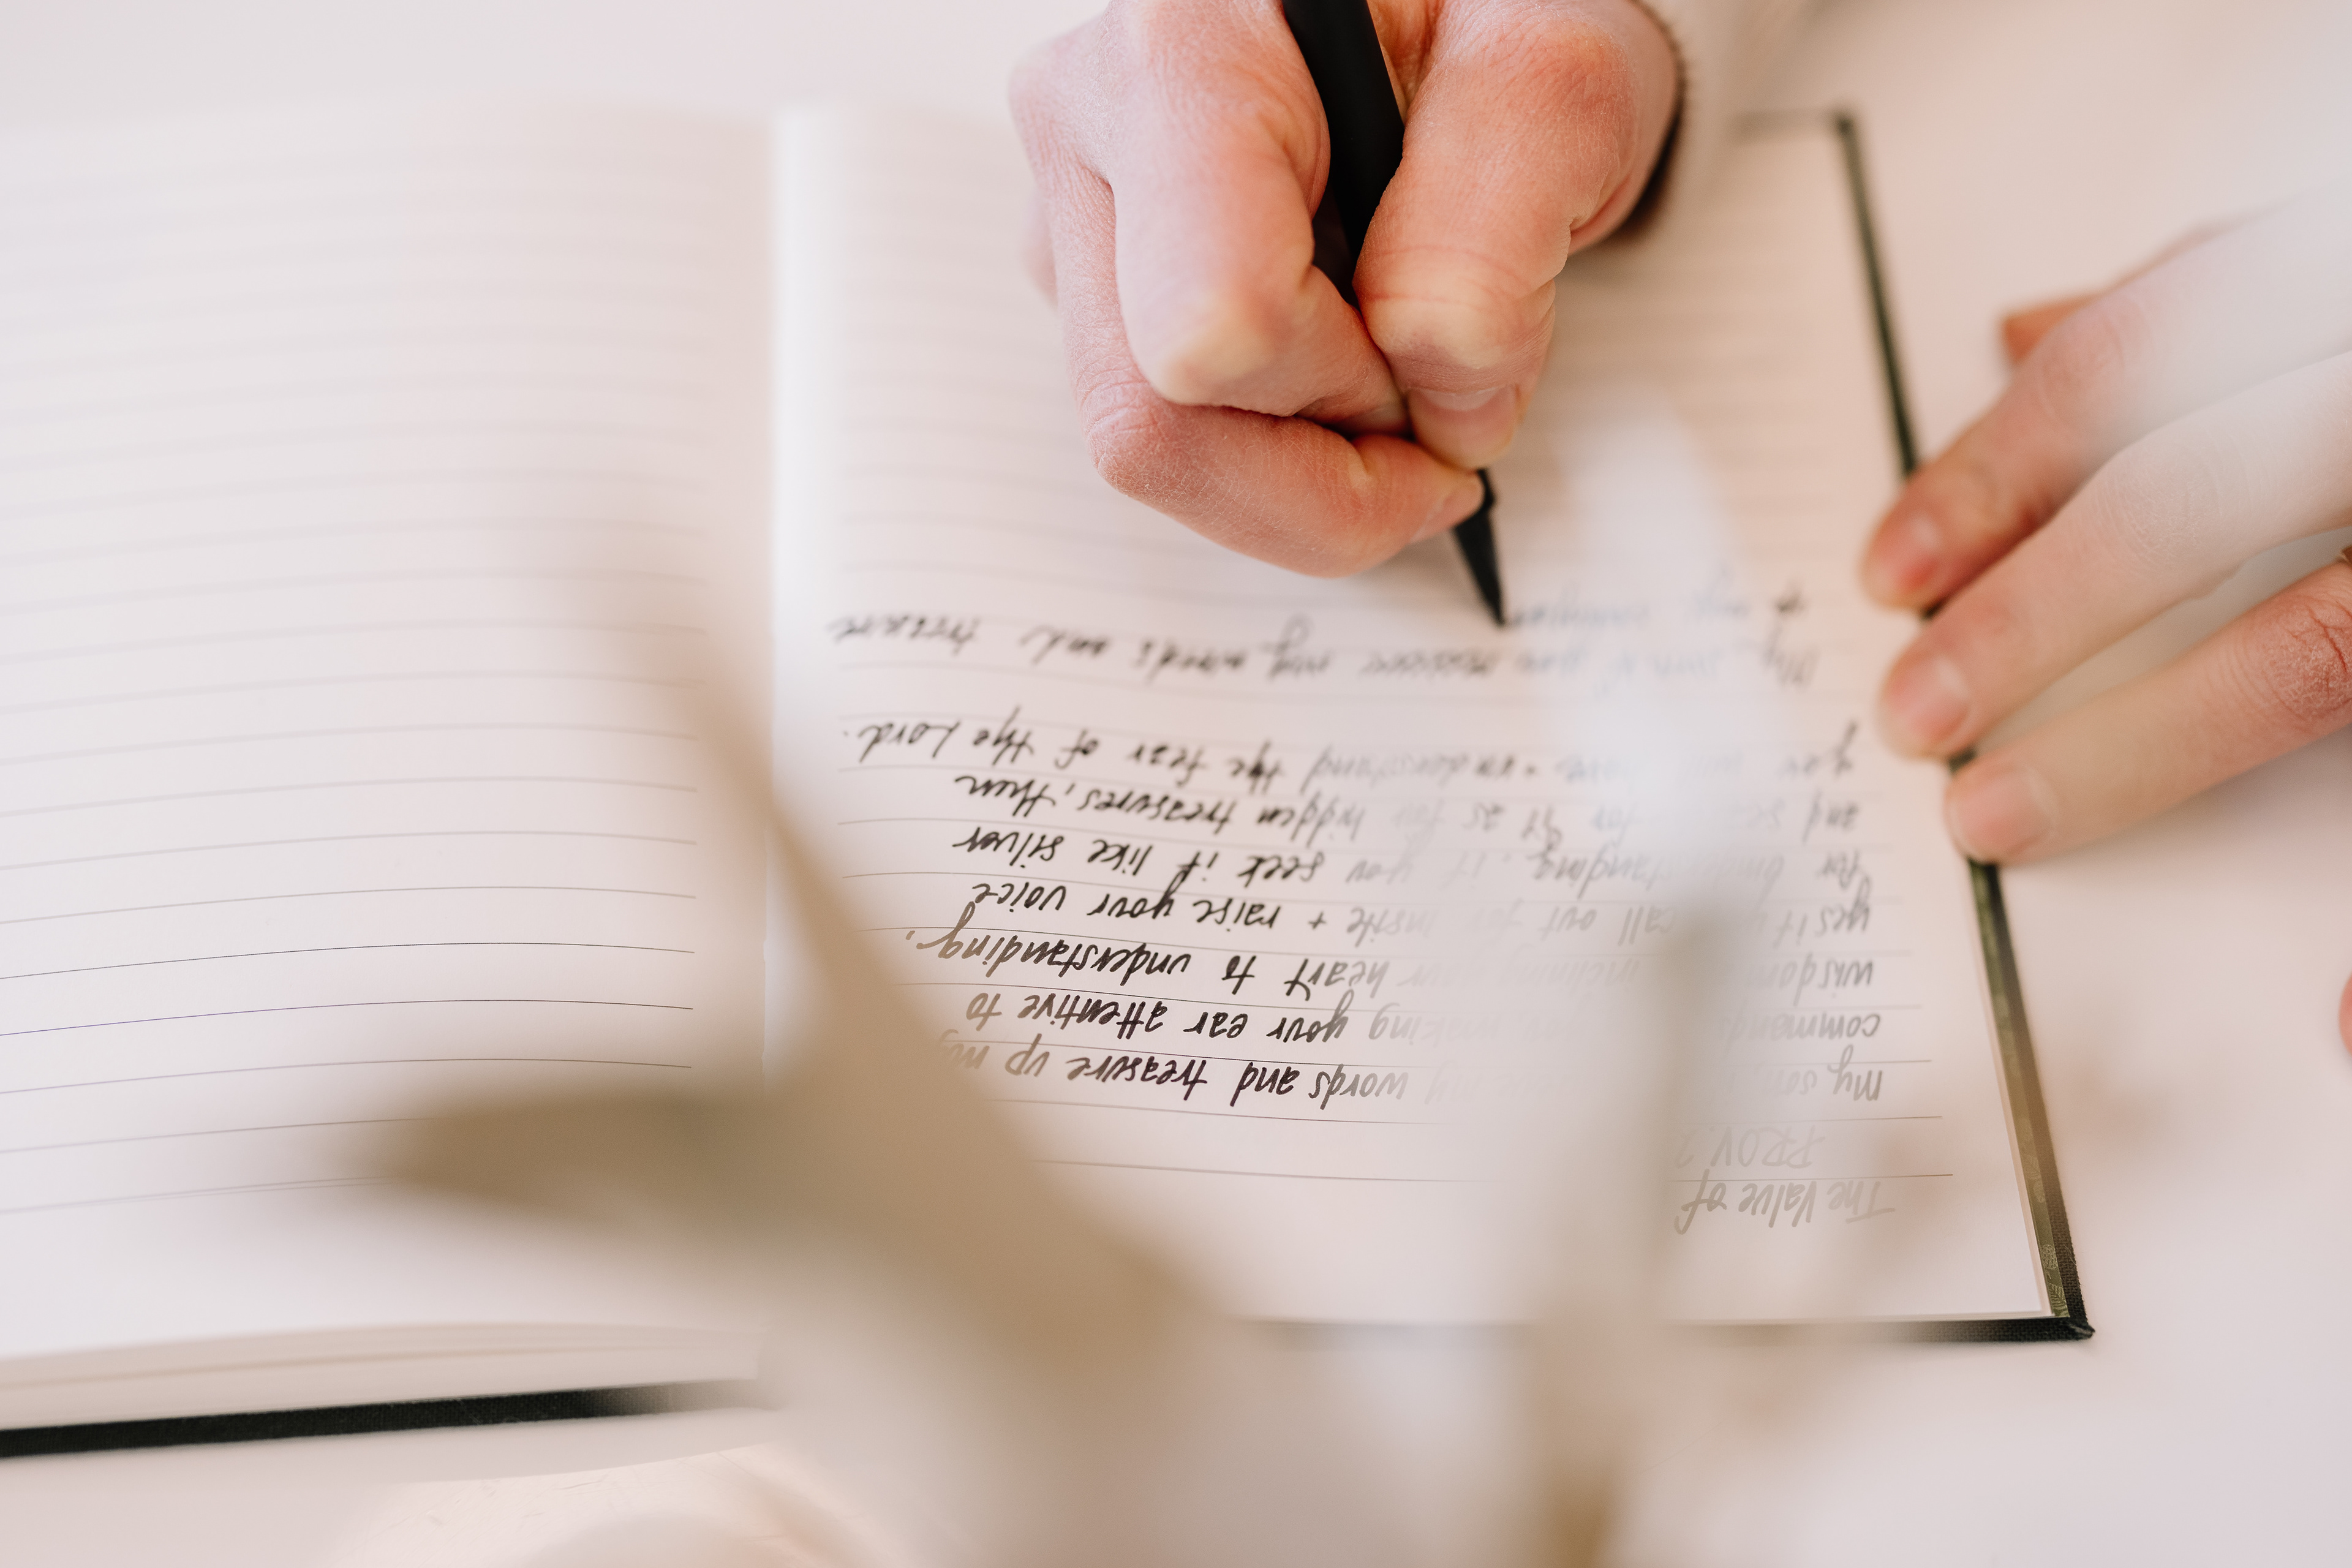 The Value of
PROV 2
My son my words and treasure up my
command making your ear attentive to
wisdom heart to understanding,
yes if call out for insite + raise your voice
for understanding. if you seek it like silver
and seek for it as for hidden treasures, then
you understand the fear of the Lord.
my words and treasure
my